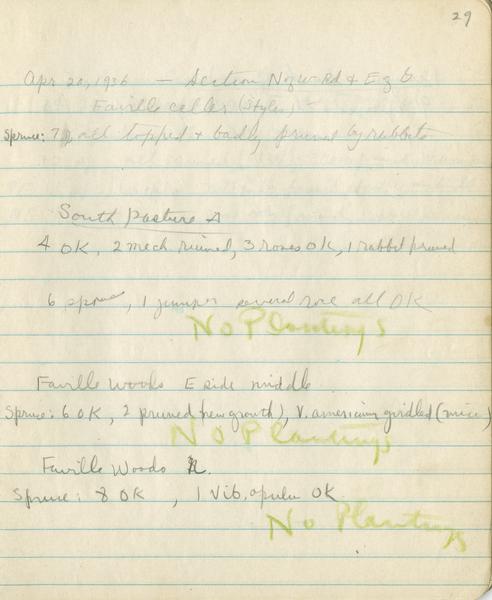 29
Apr 20, 1936 — Section N of W Rd & E of
Faville cellar (Styles)
Spruce: 7 all topped & badly pruned by rabbits
South Pasture A
4 OK, 2 mech ruined, 3 roses OK, 1 rabbit pruned
6 spruce, 1 juniper several rose all OK
No Plantings
Faville Woods E side middle
Spruce: 6 OK, 2 pruned (new growth), V. americana girdled (mice)
No Plantings
Faville Woods N.
Spruce: 8 OK, 1 Vib. opulu OK
No Plantings